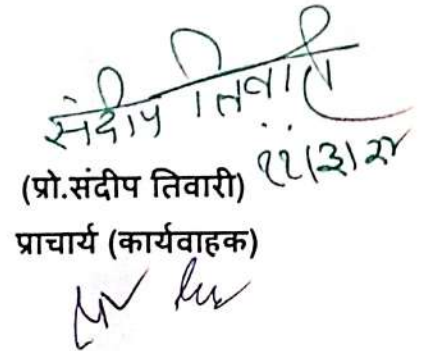 संदीप तिवारी
११/३/२४
(प्रो.संदीप तिवारी)
प्राचार्य (कार्यवाहक)